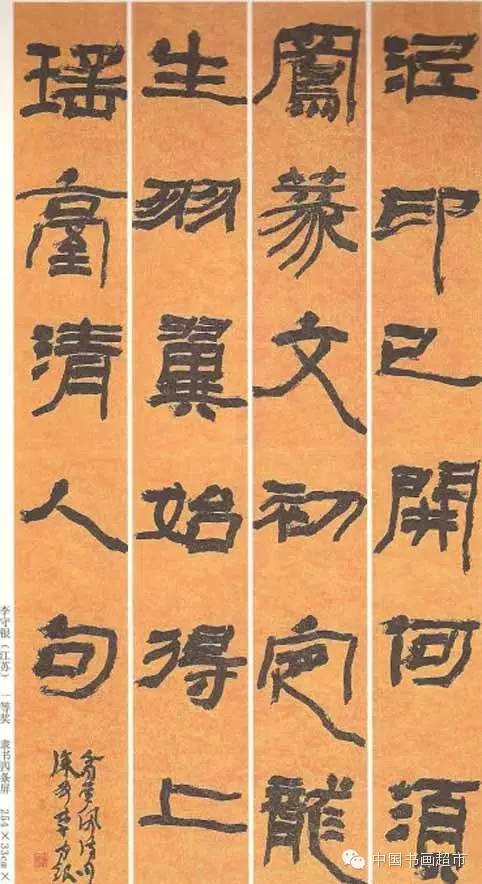 泥印已開何須
寫篆文初定龍
生羽翼始得上
瑶臺清人句
李守银（江苏） 一等奖 隶书四条屏 254×33cm×
中国书画超市